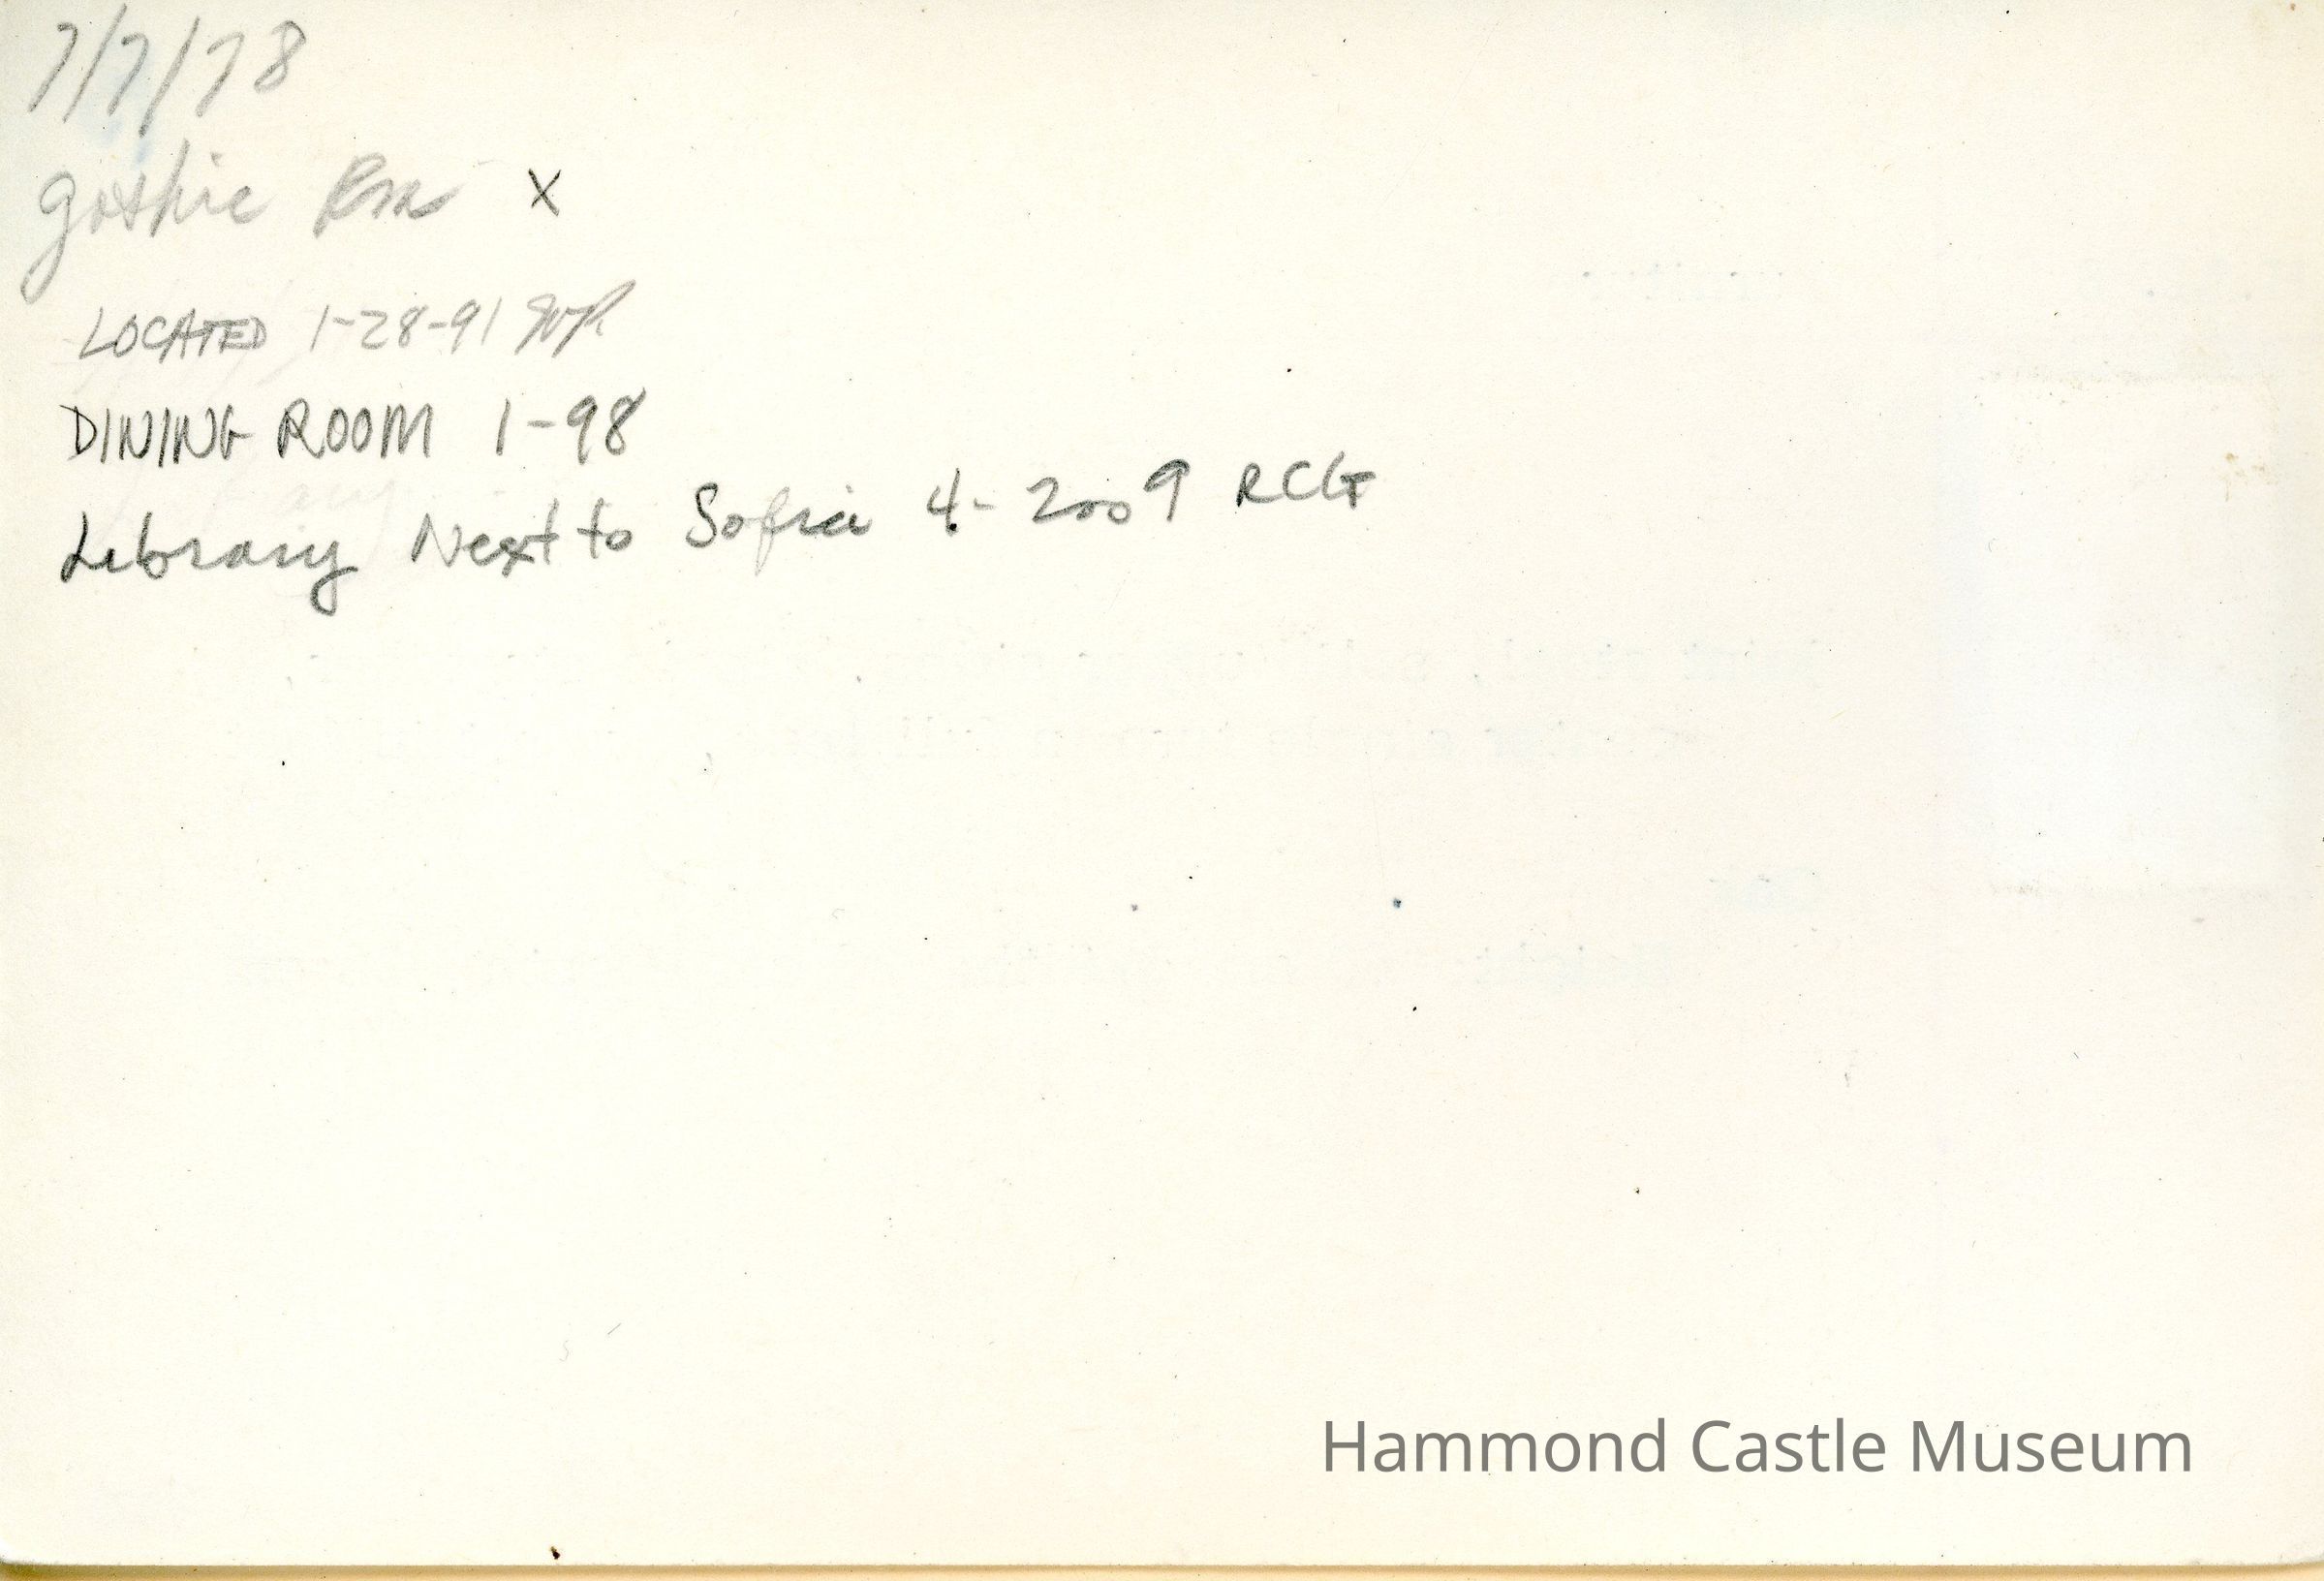 7/7/78
Gothic Rm X
LOCATED 1-28-91
DINING ROOM 1-98
Library Next to Sofia 4-2009 RCG
Hammond Castle Museum